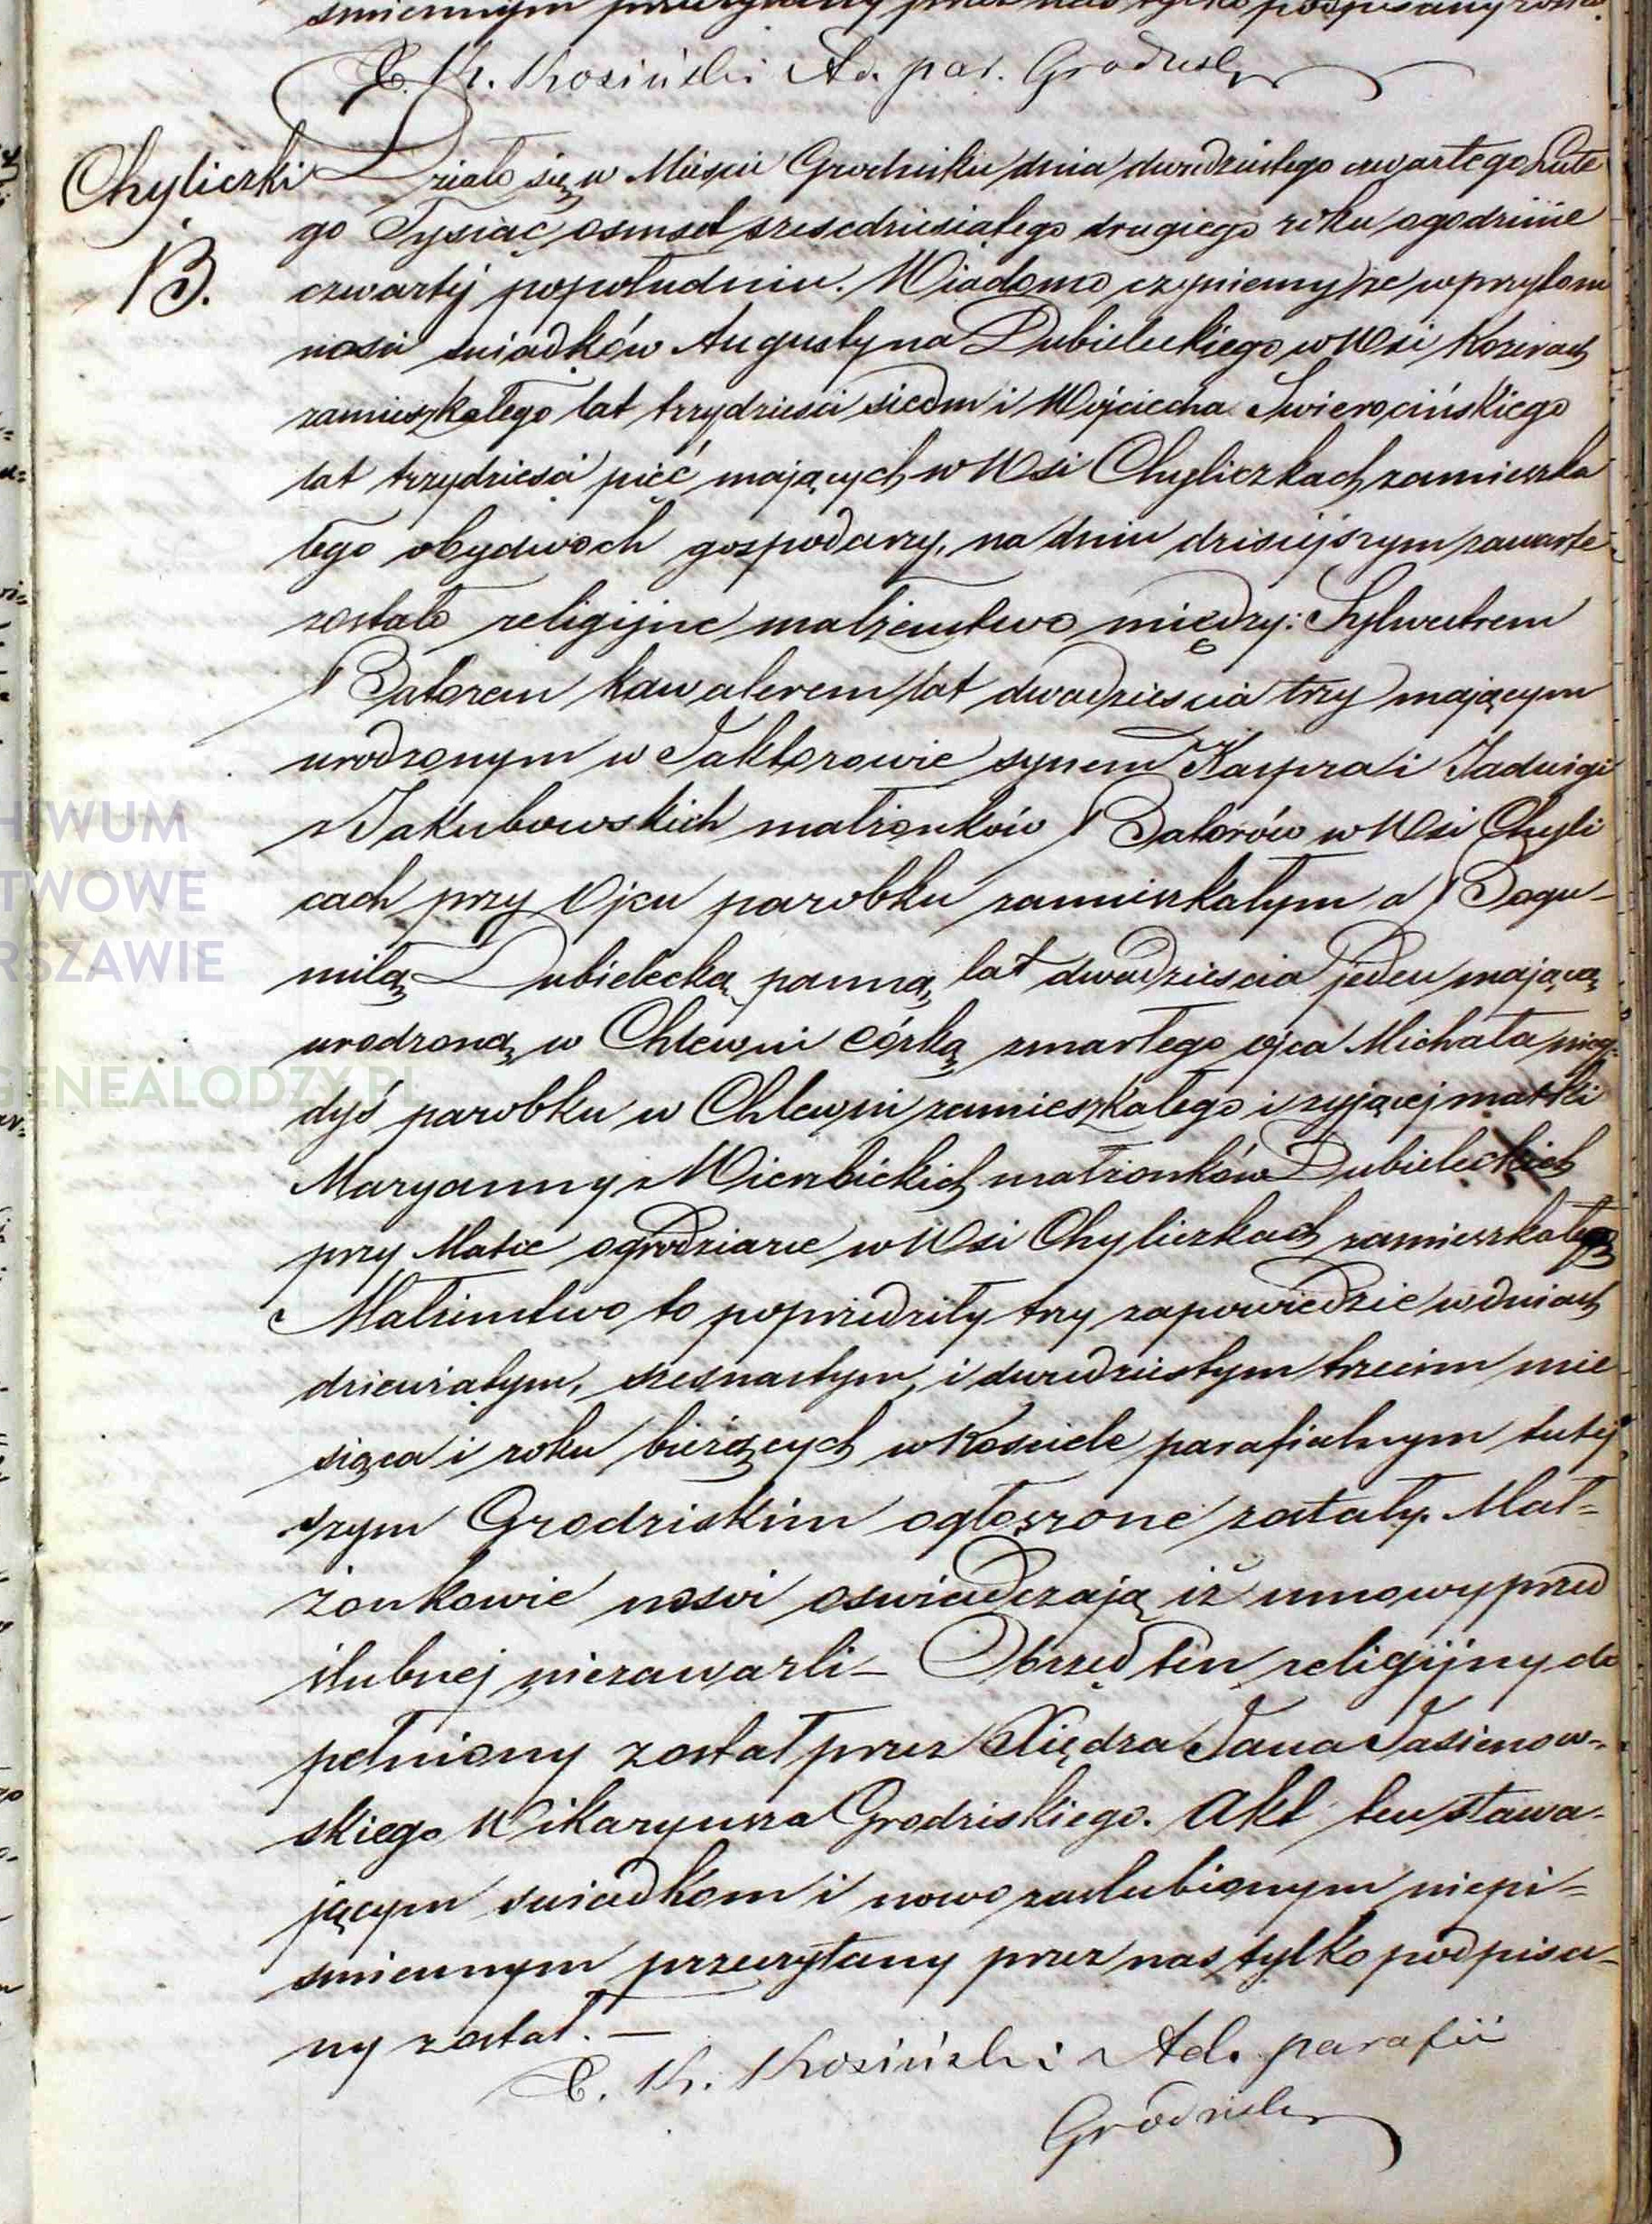 śmiennym przeczytany przez nas tylko podpisany został.
X. K. Kosiński Ad. par. Grodzisk
Chyliczki
13.
Działo się w Mieście Grodzisku dnia dwudziestego czwartego Lute
go Tysiąc osmset szescdziesiątego drugiego roku o godzinie
czwartej popołudniu. Wiadomo czyniemy że w przytom
nosci swiadków Augustyna Dubieleckiego w Wsi Kozerach
zamieszkałego lat trzydziesci siedm i Wojciecha Swierocińskiego
lat trzydziesci pięć mających w Wsi Chyliczkach zamieszka
łego obydwoch gospodarzy, na dniu dzisiejszym zawarte
zostało religijne małżeństwo między: Sylwestrem
Batorem kawalerem lat dwadziescia trzy mającym
urodzonym w Jaktorowie synem Kaspra i Jadwigi
z Jakubowskich małżonków Batorów w Wsi Chyli
cach przy Ojcu parobku zamieszkałym a Bogu-
miłą Dubielecką panną, lat dwadziescia jeden mającą
urodzoną w Chlewni córką zmarłego ojca Michała nieg-
dyś parobku w Chlewni zamieszkałego i żyjącej matki
Maryanny z Wierzbickich małżonków Dubieleckich
przy Matce ogrodziarce w Wsi Chyliczkach zamieszkałą
Małżenstwo to poprzedziły trzy zapowiedzie w dniach
dziewiątym, szesnastym, i dwudziestym trzecim mie
siąca i roku bieżących w Kosciele parafialnym tutej
szym Grodziskim ogłoszone zostały. Mał=
żonkowie nowi oswiadczają iż umowy przed
slubnej niezawarli – Obrzęd ten religijny do
pełniony został przez Xiędza Jana Jasienow-
skiego Wikaryusza Grodziskiego. Akt ten stawa-
jącym swiadkom i nowo zaslubionym niepi=
smiennym przeczytany przez nas tylko podpisa-
ny został. —
X. K. Kosiński Ad. parafii
Grodzisk
HIWUM
TWOWE
RSZAWIE
GENEALODZY.PL